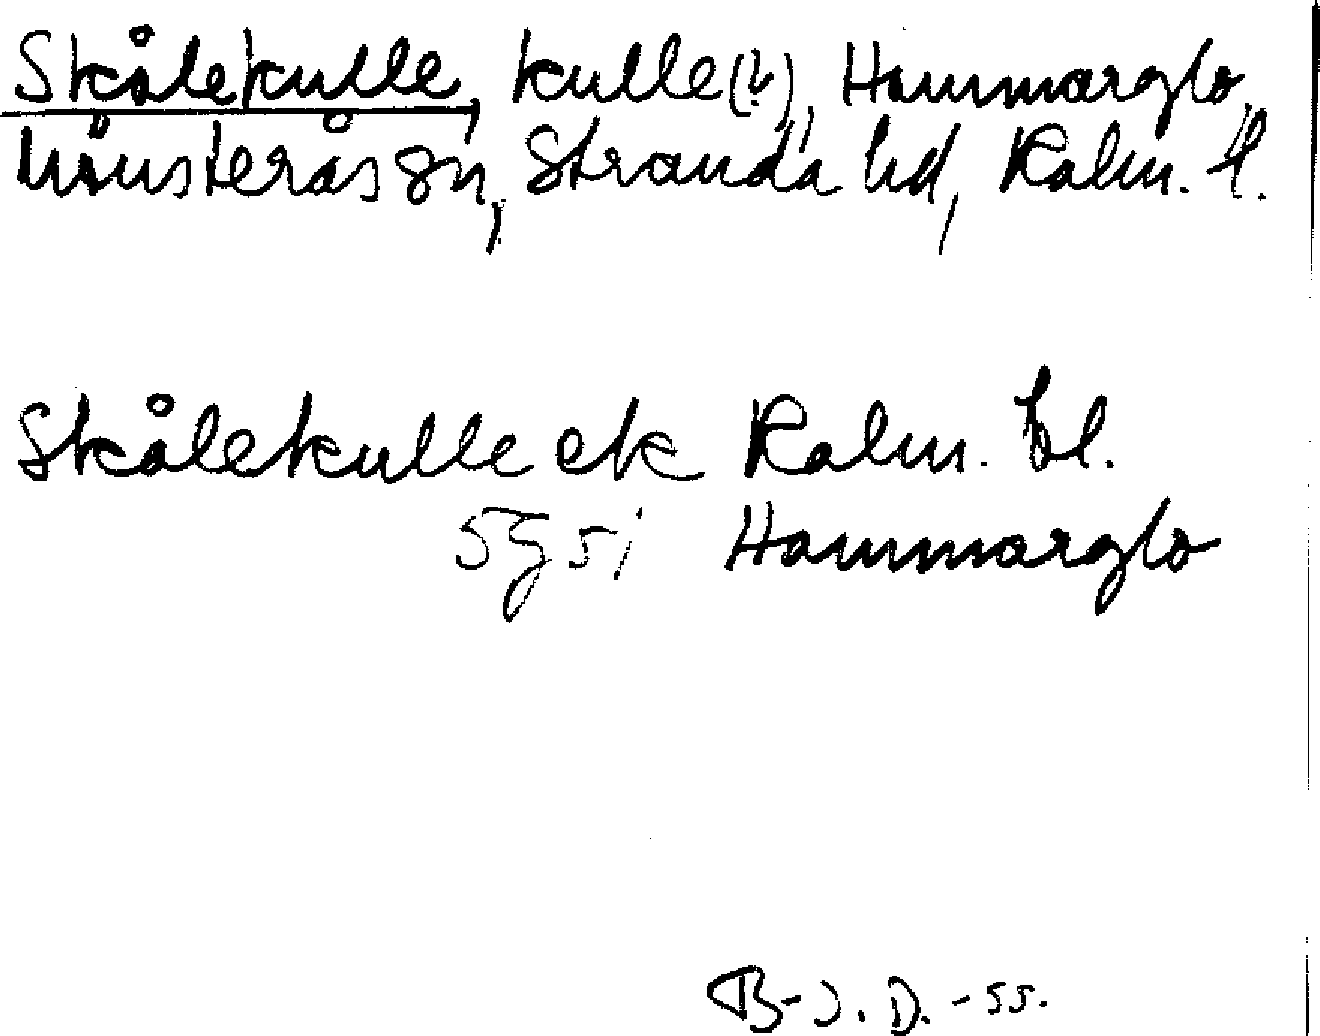 Skålekulle, kulle (?), Hammarglo,
Mönsterås sn, Stranda hd, Kalm. l.
Skålekulle ek Kalm. bl.
5g5i Hammarglo
B-J. D. -55.